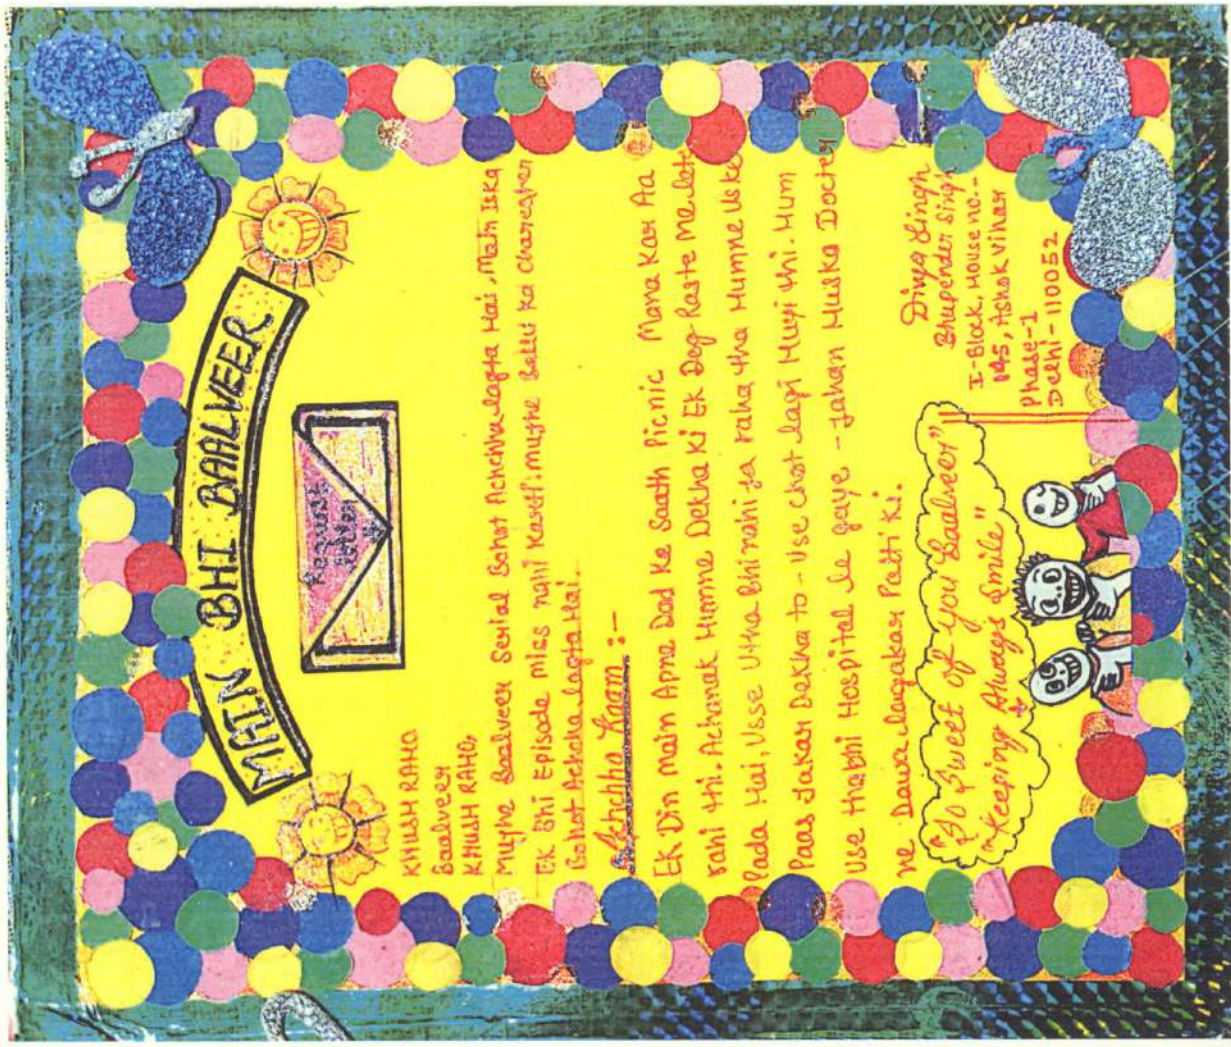 MAIN BHI BAALVEER
Request
Letter
KHUSH RAHO
Baalveer
KHUSH RAHO,
Mujhe Baalveer Serial Bohot Achchha lagta Hai. Main Iska
Ek Bhi Episode miss nahi Karti. mujhe Balli Ka Charecter
Bohot Achchha lagta Hai.
Achchha Kaam :-
Ek Din main Apne Dad Ke Saath Picnic Mana Kar Aa
rahi thi. Achanak Humne Dekha Ki Ek Dog Raste Me leta
Pada Hai, Usse Utha Bhi nahi ja raha tha Humne Uske
Paas Jakar Dekha to - Use chot lagi Huyi thi. Hum
Use thabhi Hospital le gaye - Jahan Huska Docter
ne Dawa lagakar Patti Ki.
"So Sweet of you Baalveer"
"Keeping Always Smile"
Divya Singh
Bhupender Singh
I-Block, House no.-
145, Ashok Vihar
Phase-1
Delhi - 110052